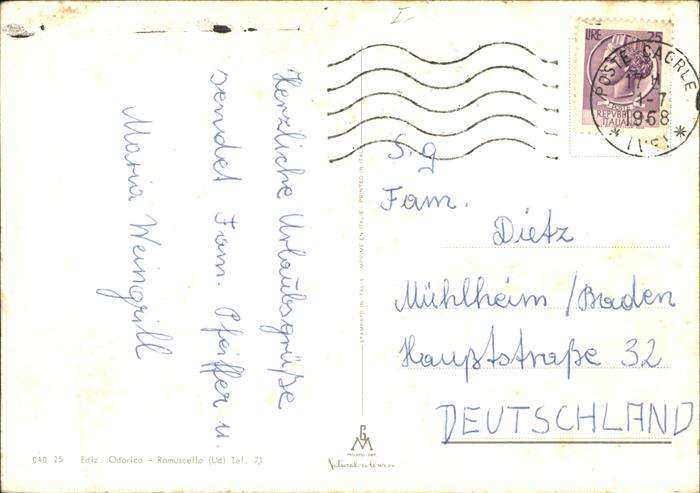 Herzliche Urlaubsgrüße
sendet Fam. Pfeiffer u.
Maria Weingrill
LIRE 25
POSTE CAORLE
17
1-7
1968
(VE)
REPVBBLICA
ITALIANA
S. g
Fam.
Dietz
Mühlheim / Baden
Hauptstraße 32
DEUTSCHLAND
STAMPATO IN ITALIA IMPRIMÉ EN ITALIE PRINTED IN ITALY
CAO 25 Ediz. Odorico - Ramuscello (Ud) Tel. 73